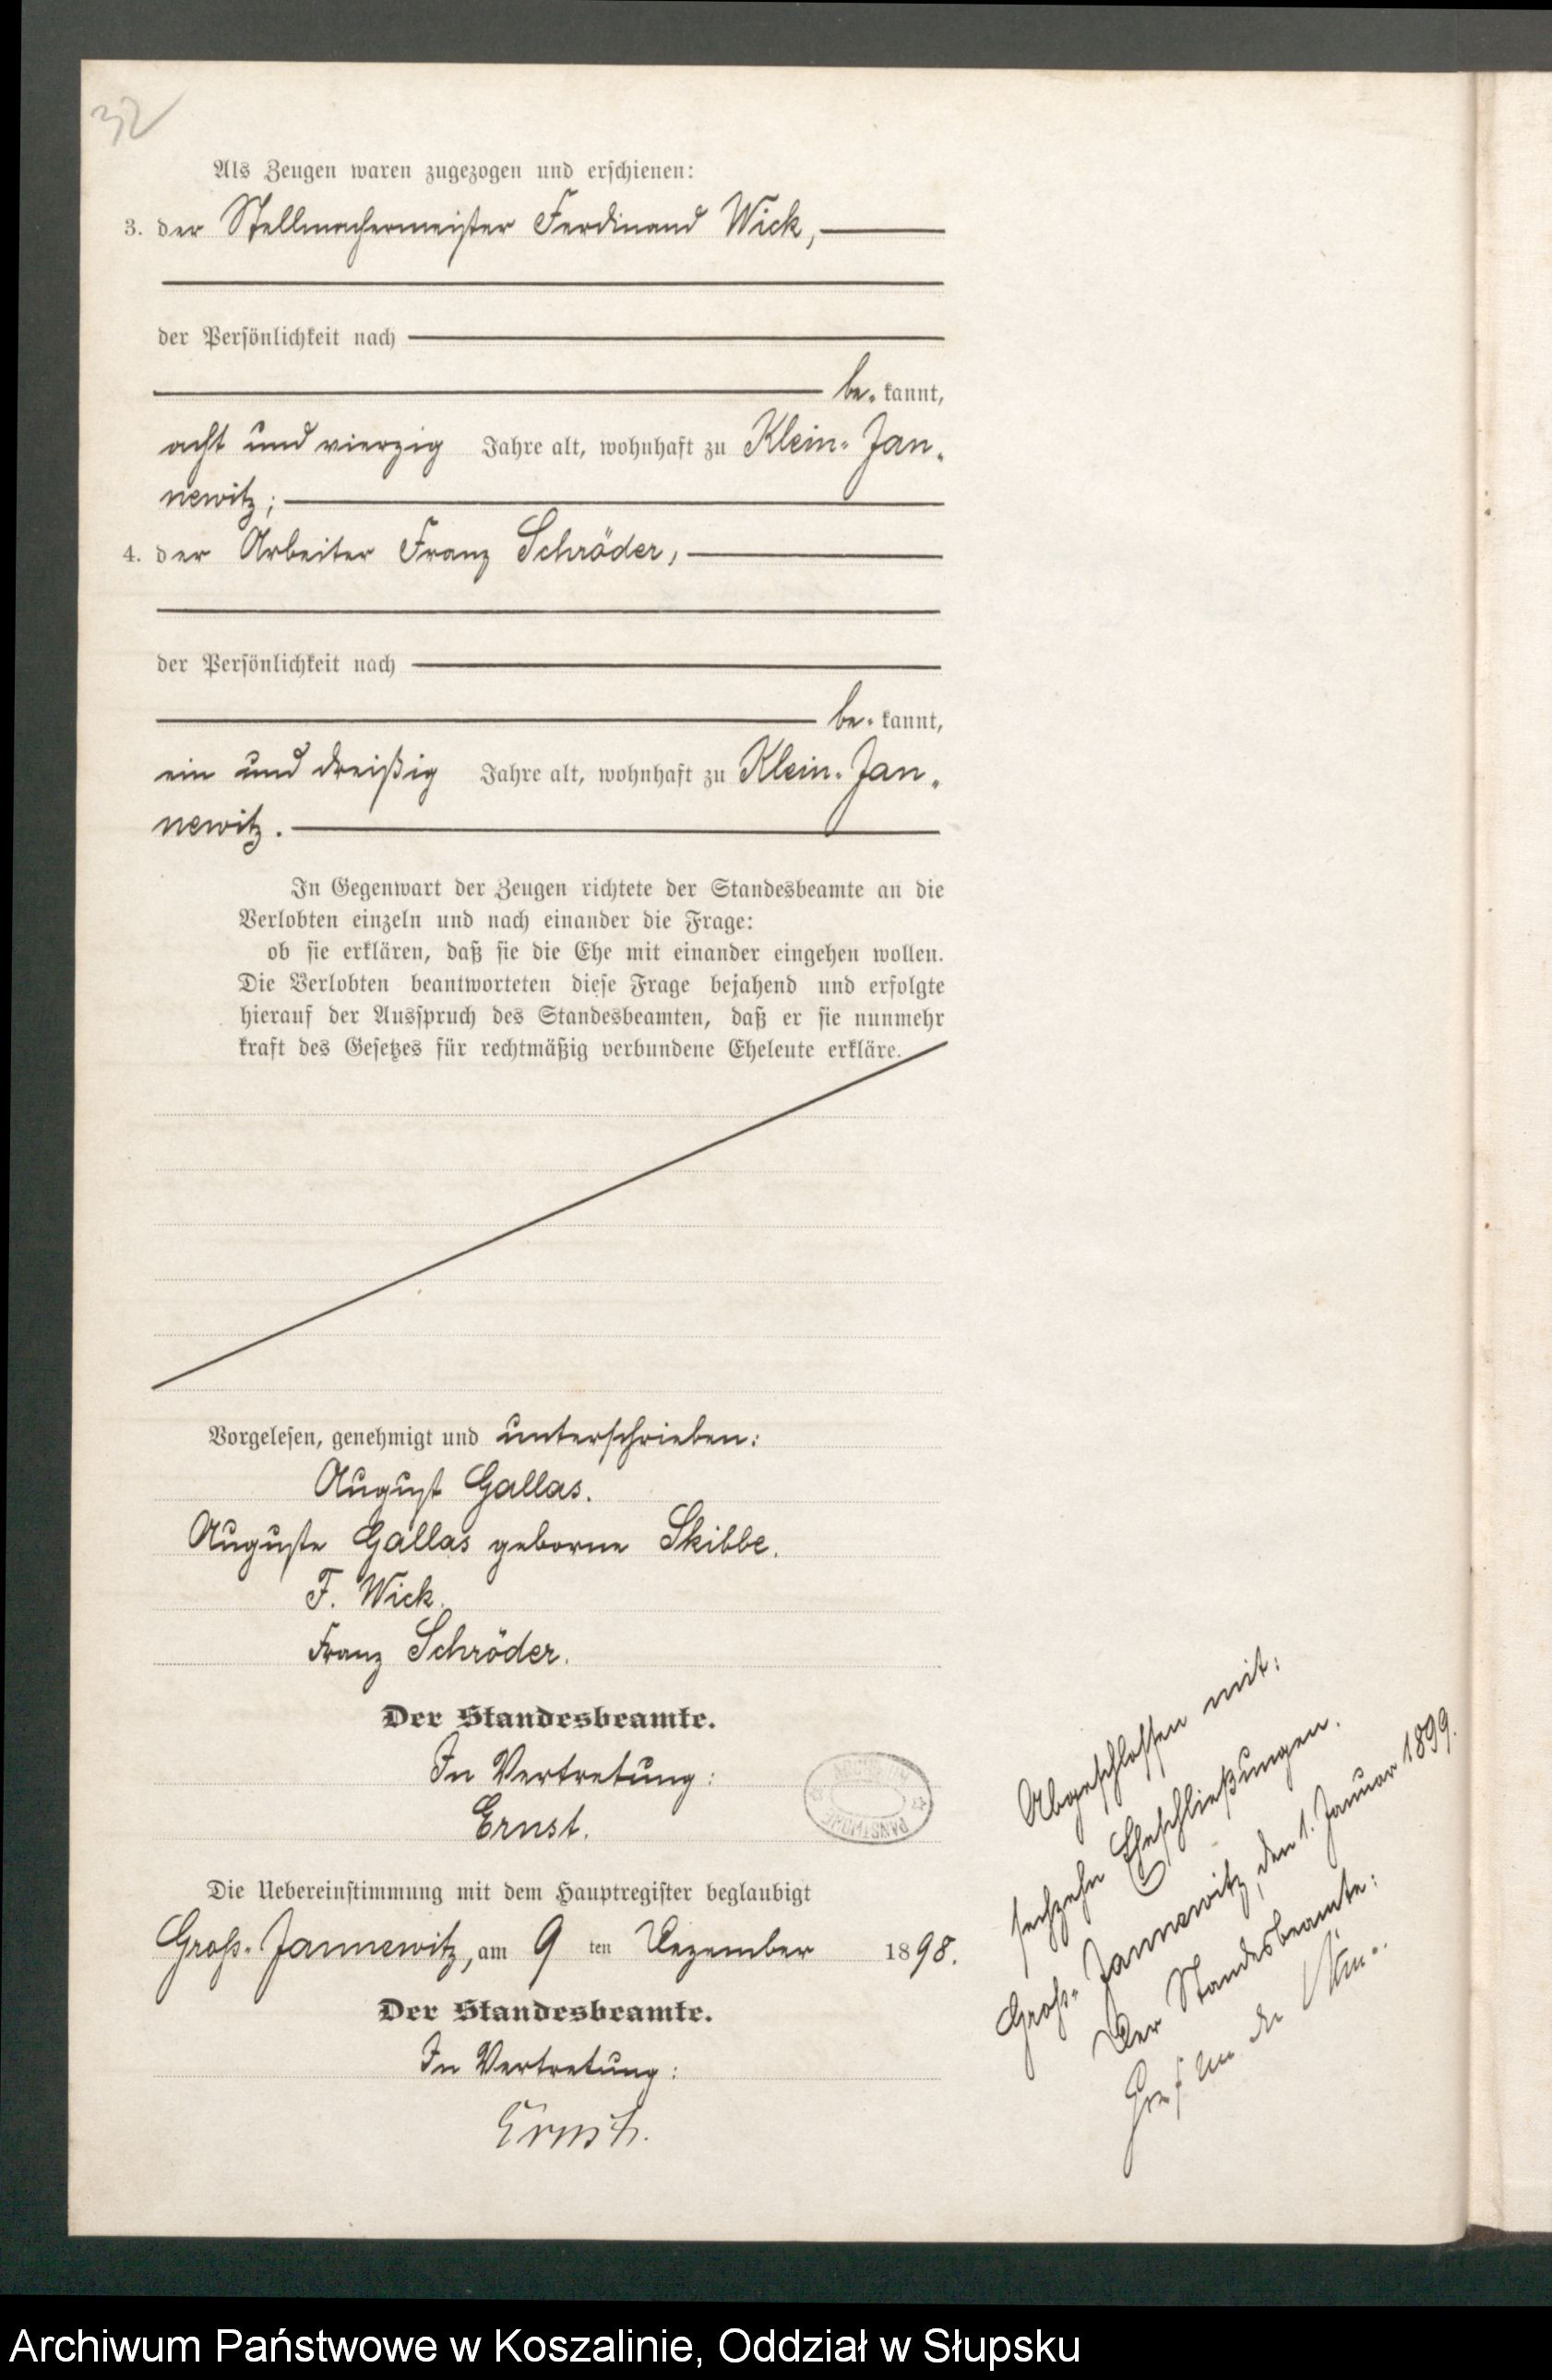 32
Als Zeugen waren zugezogen und erschienen:
3. der Stellmachermeister Ferdinand Wick,
der Persönlichkeit nach
be- kannt,
acht und vierzig Jahre alt, wohnhaft zu Klein-Jan-
newitz;
4. der Arbeiter Franz Schröder,
der Persönlichkeit nach
be- kannt,
ein und dreißig Jahre alt, wohnhaft zu Klein-Jan-
newitz.
In Gegenwart der Zeugen richtete der Standesbeamte an die
Verlobten einzeln und nach einander die Frage:
ob sie erklären, daß sie die Ehe mit einander eingehen wollen.
Die Verlobten beantworteten diese Frage bejahend und erfolgte
hierauf der Ausspruch des Standesbeamten, daß er sie nunmehr
kraft des Gesetzes für rechtmäßig verbundene Eheleute erkläre.
Vorgelesen, genehmigt und unterschrieben:
August Gallas.
Auguste Gallas geborne Skibbe.
F. Wick.
Franz Schröder.
Der Standesbeamte.
In Vertretung:
Ernst.
Die Uebereinstimmung mit dem Hauptregister beglaubigt
Groß-Jannewitz, am 9 ten Dezember 1898.
Der Standesbeamte.
In Vertretung:
Ernst.
Abgeschlossen mit:
sechzehn Eheschließungen.
Groß-Jannewitz, den 1. Januar 1899.
Der Standesbeamte:
Archiwum Państwowe w Koszalinie, Oddział w Słupsku